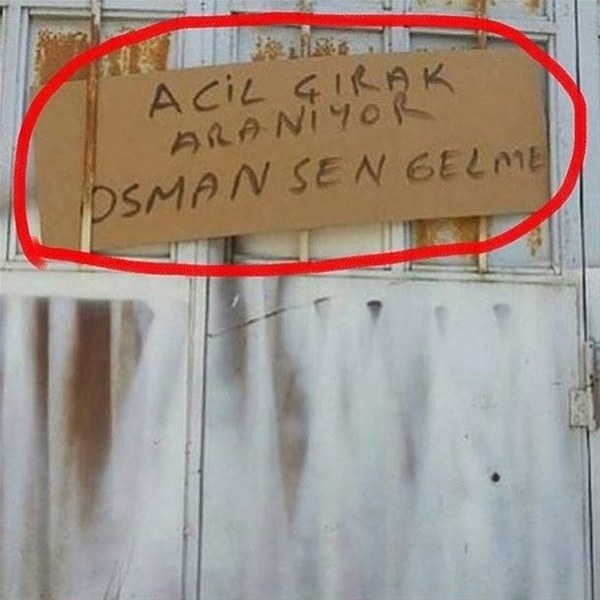 ACİL ÇIRAK
ARANIYOR
OSMAN SEN GELME